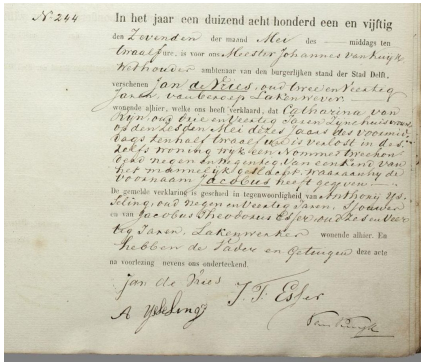 N° 244
In het jaar een duizend acht honderd een en vijftig
den Zevenden der maand Mei des — middags ten
twaalf ure, is voor ons Meester Johannes van Kuyk
Wethouder ambtenaar van den burgerlijken stand der Stad Delft,
verschenen Jan de Vries, oud twee en Veertig
Jaren, van beroep Lakenwever.
wonende alhier, welke ons heeft verklaard, dat Catharina van
Ryn, oud drie en Veertig Jaren, Zyne huisvrouw
op den Zesden Mei dezes Jaars des voormid-
dags ten half twaalf ure is verlost in des-
zelfs woning wyk een Nommer twee hon-
derd negen en negentig, van een kind van
het mannelyk geslacht, waaraan hy de
voornaam Jacobus heeft gegeven —
De gemelde verklaring is geschied in tegenwoordigheid van Anthony Ys-
seling, oud negen en Veertig Jaren, Sjouwer
en van Jacobus Theodorus Esser, oud Zes en Veer-
tig Jaren, Lakenwerker wonende alhier. En
hebben de Vader en Getuigen deze acte
na voorlezing nevens ons onderteekend.
Jan de Vries
A Ysseling J. T. Esser